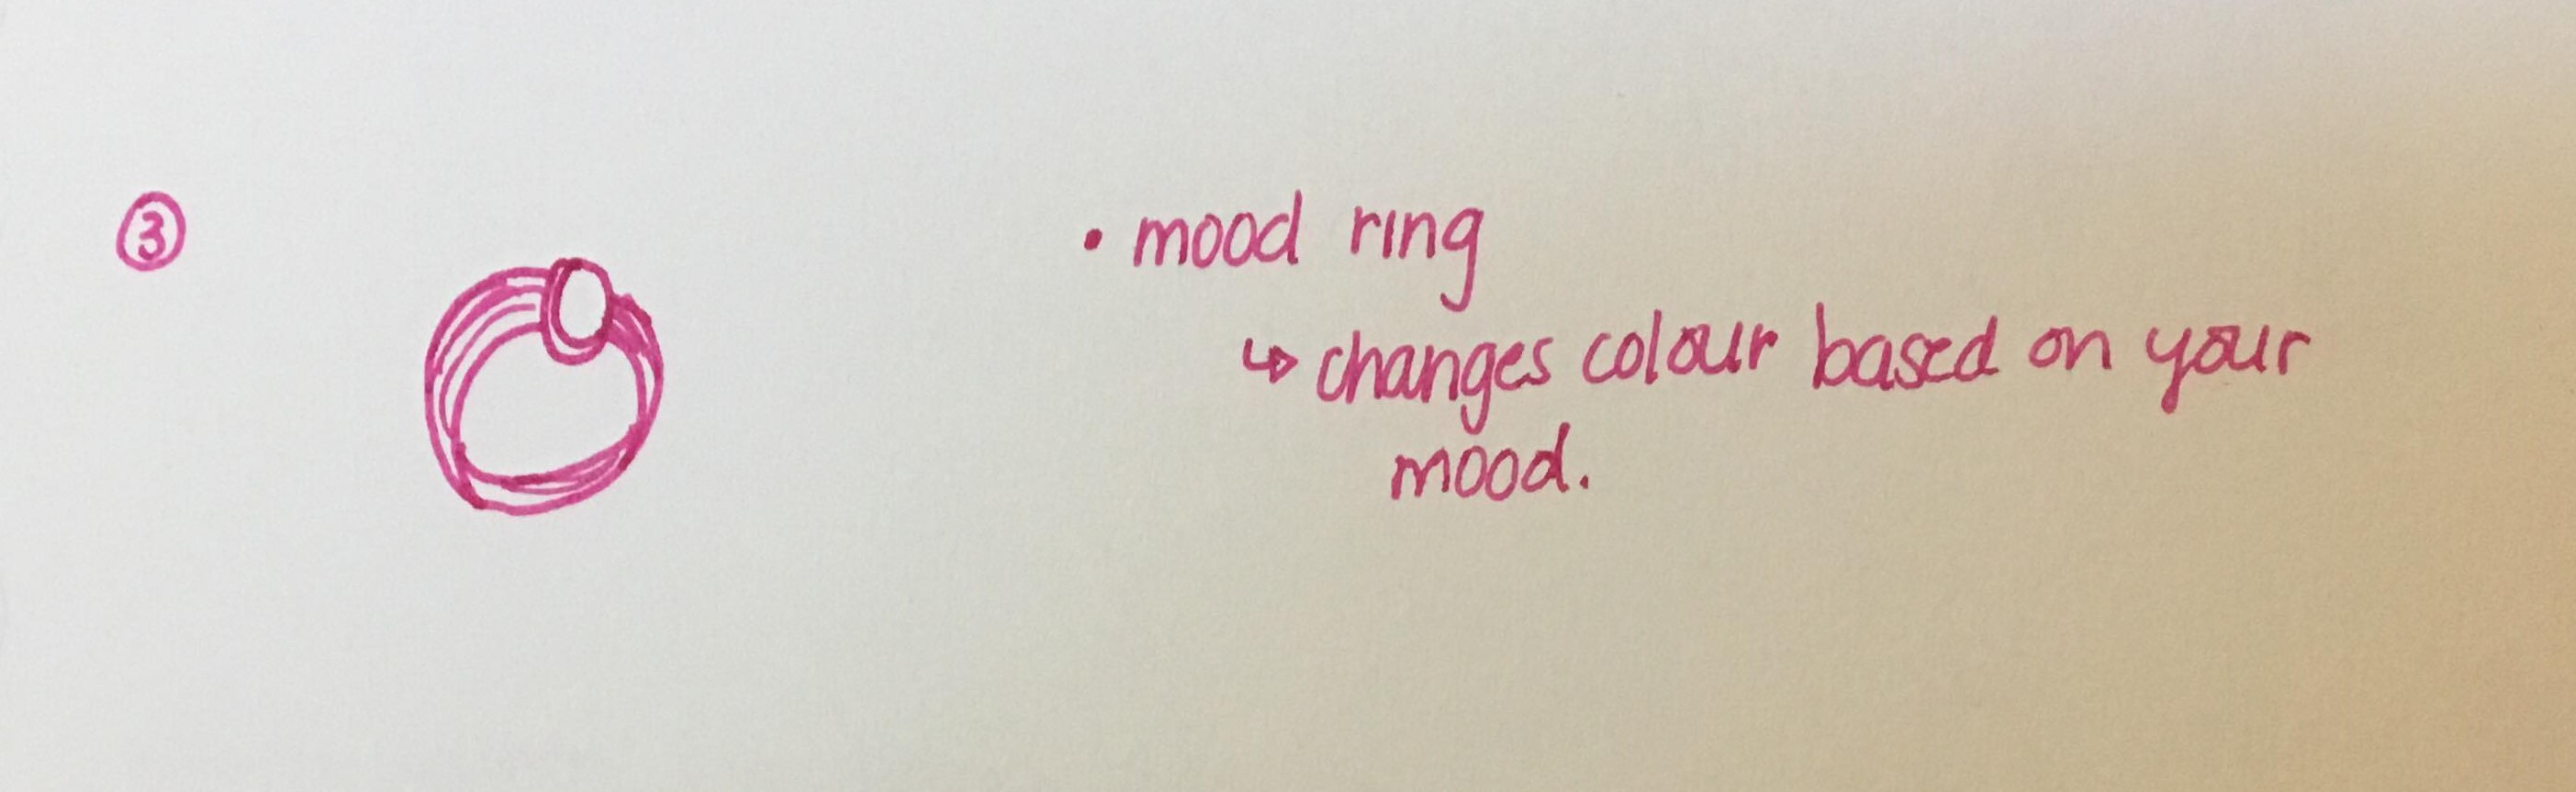 ③
• mood ring
↳ changes colour based on your
mood.